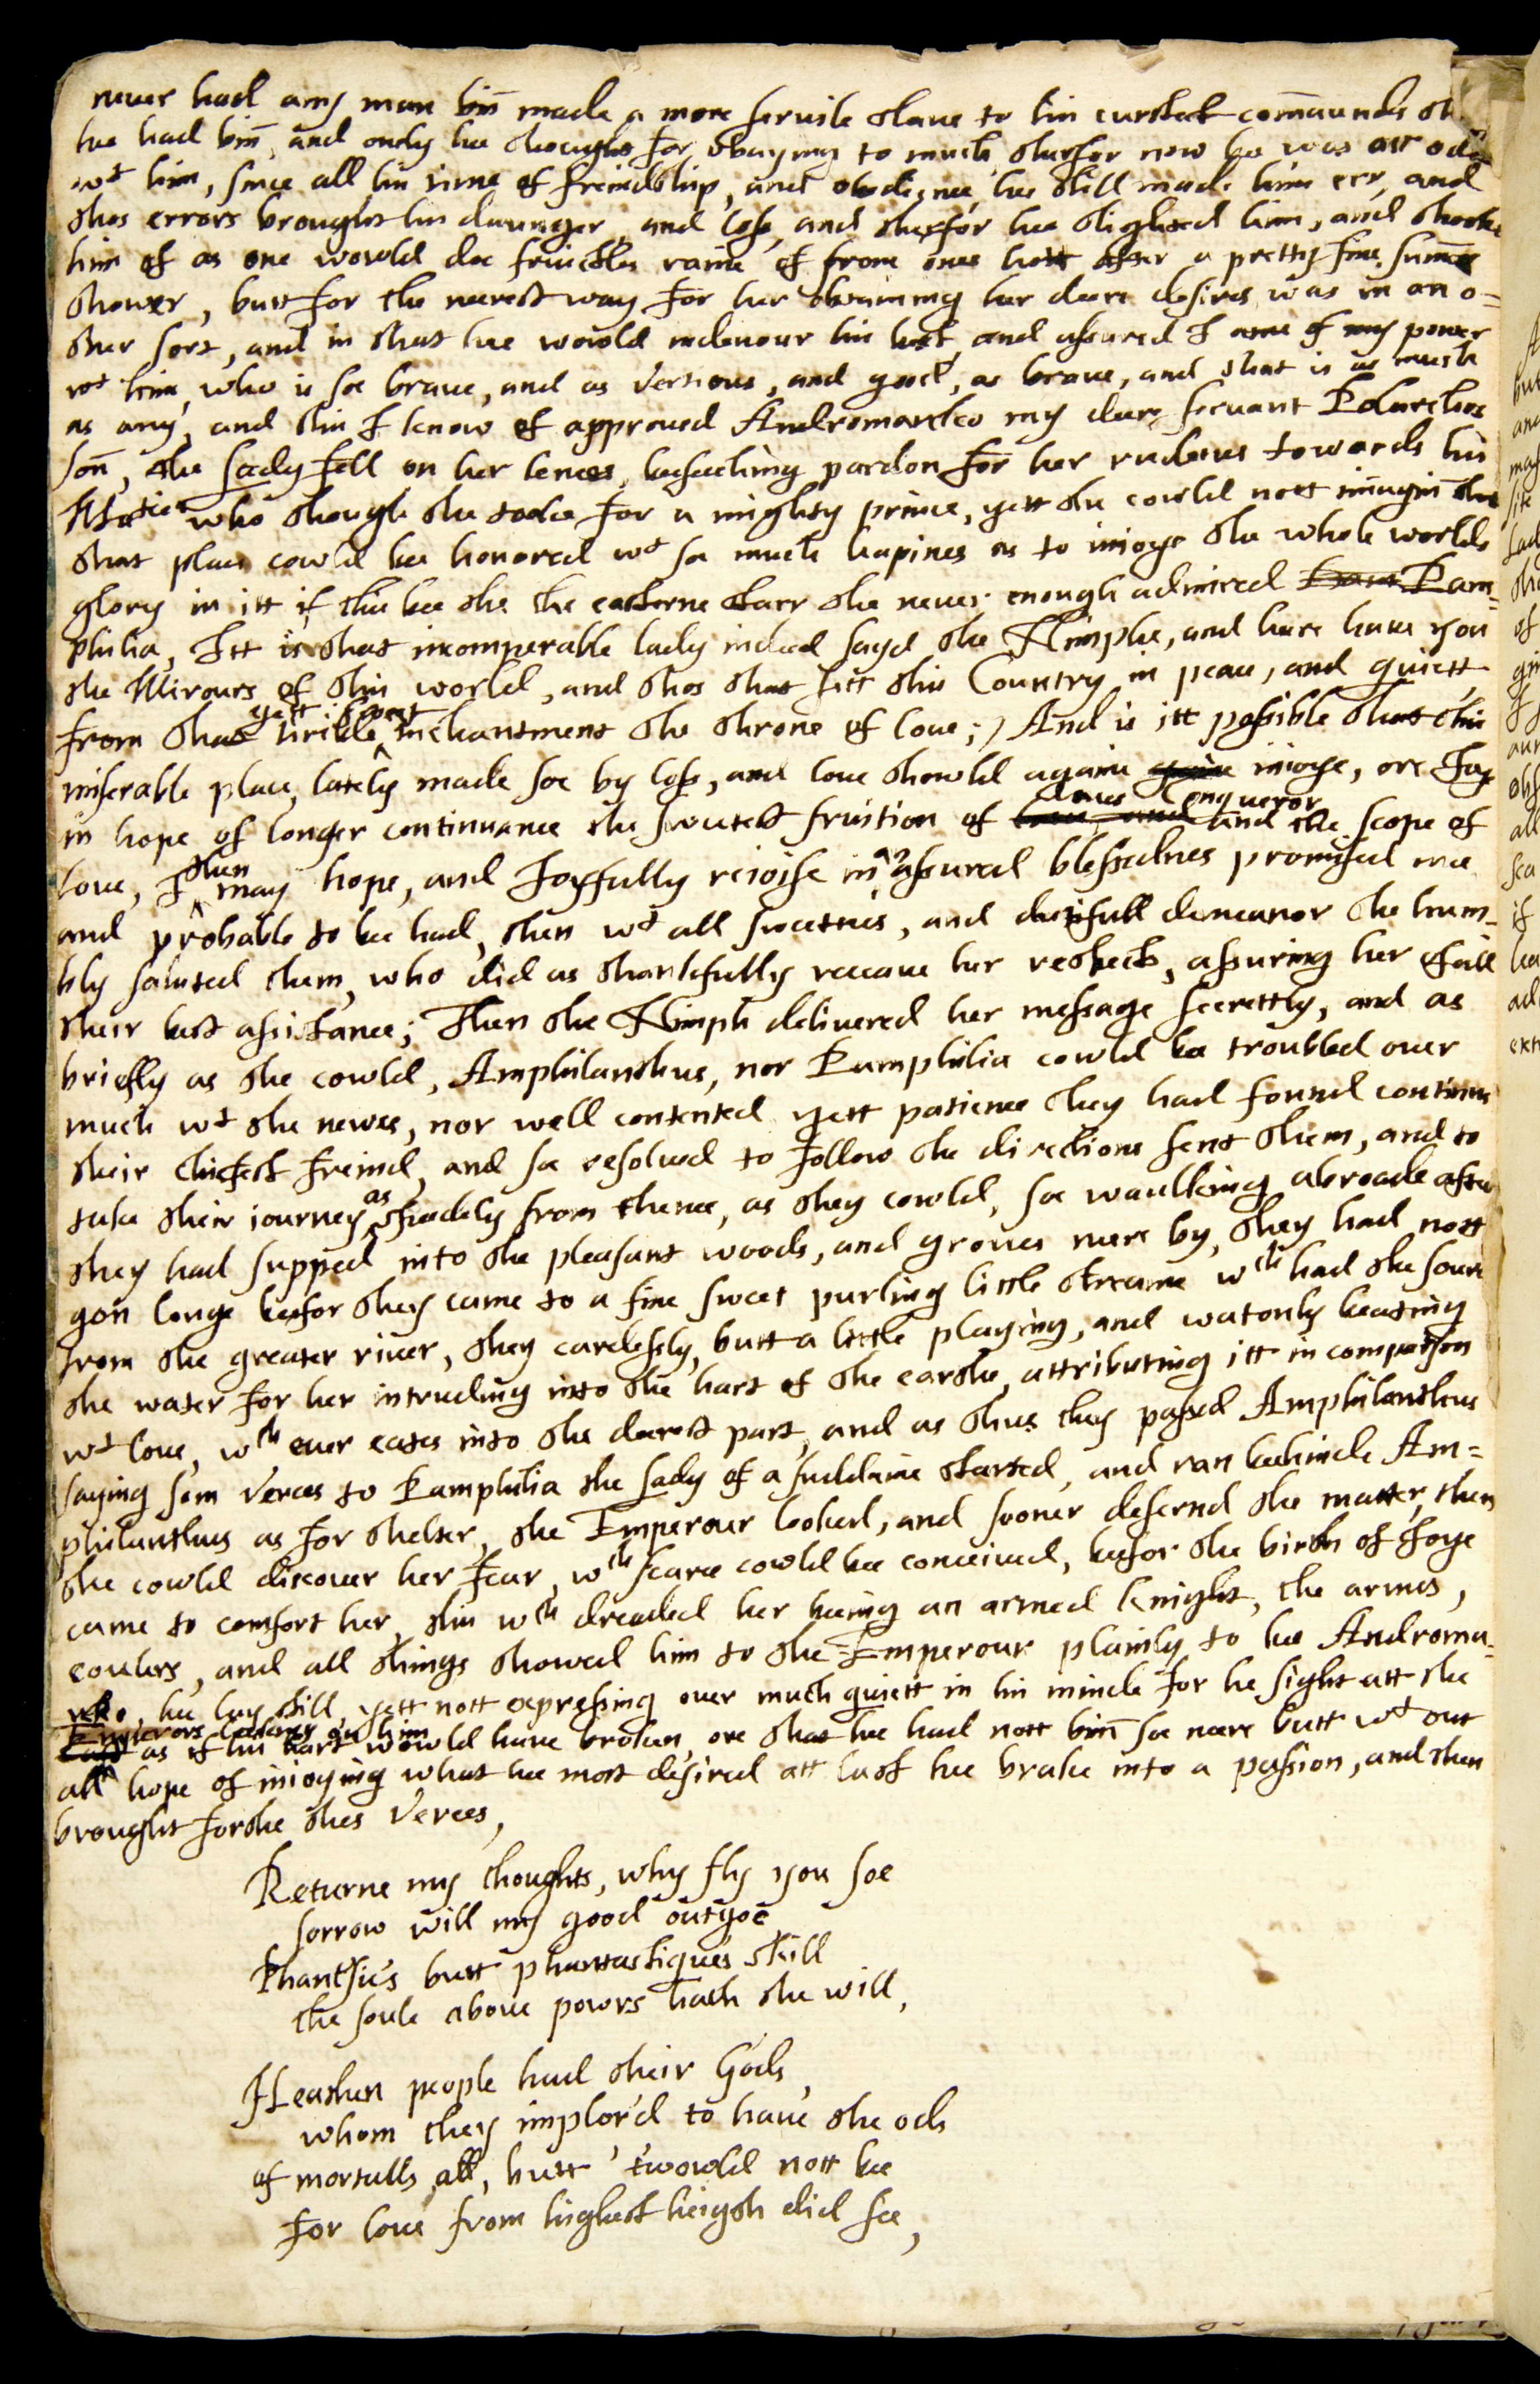 never had any man bin̄ made a more servile slave to his curstest com̄aunds th
hee had bin̄, and only hee thought for obaying to much, therfor now hee was att ods
wt him, since all his time of freindship, and obedience hee still made him err, and
thos errors brought his daunger, and loss, and therfor hee slighted him, and shooke
him of as one wowld doe fruictles raine of from ones hatt after a pretty fine sum̄er
shower, butt for the neerest way for her obtaining her deere desires was in an o=
ther sort, and in that hee wowld indevour his best, and assured I ame of my power
wt him, who is soe brave, and as vertious, and good, as brave, and that is as much
as any, and this I know of approved Andromarcko my deere servant Polarchos
son̄, the Lady fell on her knees, beseeching pardon for her rudenes towards his
Matie who though she tooke for a mighty prince, yett she cowld nott im̄agin that
that place cowld bee honored wt soe much hapines as to injoye the whole worlds
glory in itt if this bee she the easterne starr the never enough admired Pam=
philia, Itt is that incomperable lady indeed sayd the Nimphe, and heere have you
the Mirours of this world, and thos that sett this Country in peace, and quiett
yett sweet
from that tirible inchantment the throne of love; / And is itt possible that this
miserable place, lately made soe by loss, and love showld againe injoye, ore Joy
Loves Conqueror
in hope of longer continuance the sweetest fruition of and the scope of
then an
love, I may hope, and Joyfully rejoise in assured blessednes promised mee
and probable to bee had, then wt all sweetnes, and dutifull demeanor she hum=
bly saluted them, who did as thankfully receave her respects, assuring her of all
their best assistance; Then the Nimph delivered her message secrettly, and as
briefly as she cowld, Amphilanthus, nor Pamphilia cowld bee troubled over
much wt the newes, nor well contented yett patience they had found continu
their chiefest freind, and soe resolved to follow the directions sent them, and to
as
take their journey speedely from thence, as they cowld, soe waulking abroade after
they had supped into the pleasant woods, and groves neere by, they had nott
gon longe beefor they came to a fine sweet purling little streame wch had the sour
from the greater river, they carelessly, butt a little playing, and watonly beating
the water for her intruding into the hart of the earthe, attributing itt in comparison
wt love, wch ever eates into the deerest part, and as thus they passed Amphilanthus
saying som verces to Pamphilia the Lady of a suddaine started, and ran beehinde Am=
philanthus as for shelter, the Emperour looked, and sooner desernd the matter, then
she cowld discover her fear, wch scarce cowld bee conceived, beefor the birth of Joye
came to comfort her, this wch dreaded her beeing an armed knight, the armes,
coulers, and all things showed him to the Emperour plainly to bee Androma=
rcko, hee lay still, yett nott expressing over much quiett in his minde for he sight att the
Emperors leaving on him
last as if his hart wowld have broken, ore that hee had nott bin̄ soe neere butt wt out
all hope of injoying what hee most desired att last hee brake into a passion, and then
brought forthe thes verces,
Returne my thoughts, why fly you soe
sorrow will my good outgoe
Phantsies butt phantastiques skill
the soule above powrs hath the will,
Heathen people had their Gods,
whom they implor'd to have the ods
of mortalls all, butt 'twowld nott bee
for love from highest heigth did see,